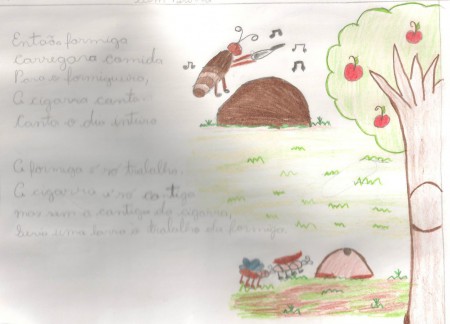 Então a formiga
carregava comida
Para o formigueiro,
A cigarra canta
Canta o dia inteiro
A formiga é só trabalho.
A cigarra é só cantiga
mas sem a cantiga da cigarra,
Seria uma o trabalho da formiga.